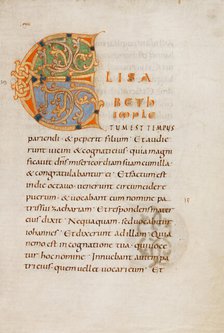 E LISA
BETH
IMPLE
TUM EST TEMPUS
pariendi. & peperit filium. Et audie
runt uicini & cognati eius quia magni
ficauit dns misericordiam suam cum illa
& congratulabantur ei. Et factum est
in die octauo uenerunt circumcidere
puerum & uocabant eum nomine pa
tris sui zachariam. Et respondens mater
eius dixit. Nequaquam. sed uocabitur
iohannes. Et dixerunt ad illam. Quia
nemo est in cognatione tua qui uoce
tur hoc nomine. Innuebant autem pa
tri eius quem uellet uocari eum. Et